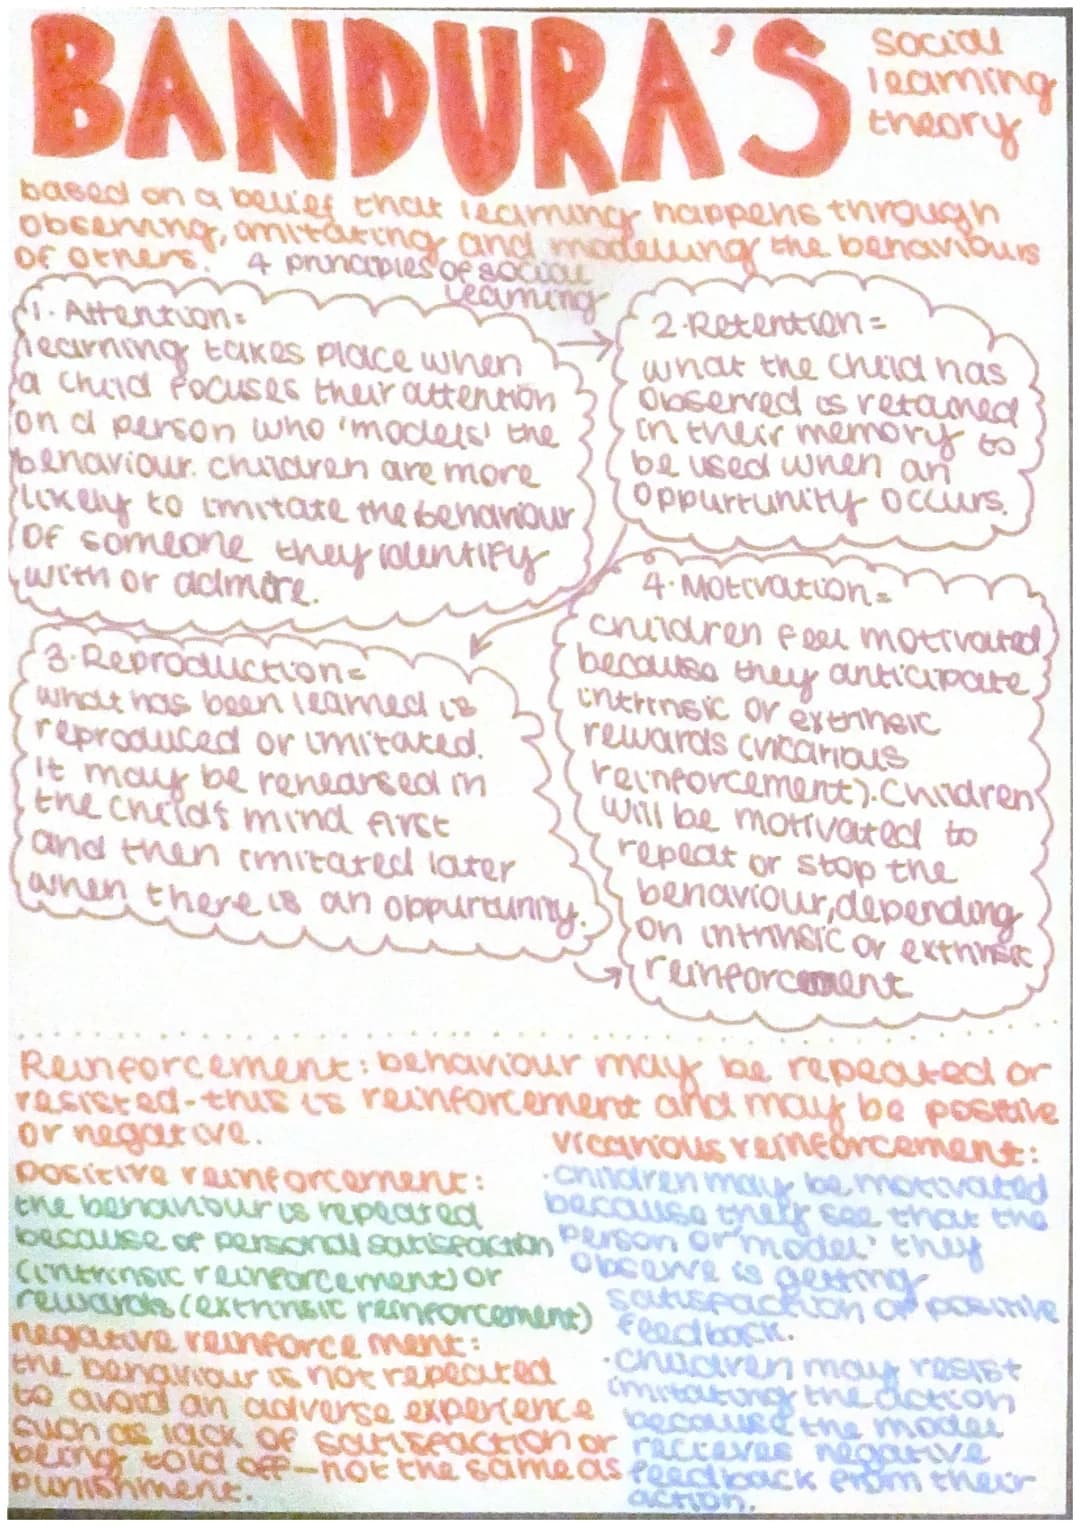 BANDURA'S
social
learning
theory
based on a belief that learning happens through
observing, imitating and modelling the behaviours
of others.
4 principles of social
learning
1. Attention=
learning takes place when
a child focuses their attention
on a person who 'models' the
behaviour. children are more
likely to imitate the behaviour
of someone they identify
with or admire.
2. Retention=
what the child has
observed is retained
in their memory to
be used when an
oppurtunity occurs.
3. Reproduction=
what has been learned is
reproduced or imitated.
it may be rehearsed in
the child's mind first
and then imitated later
when there is an oppurtunity.
4. Motivation=
children feel motivated
because they anticipate
intrinsic or extrinsic
rewards (vicarious
reinforcement). Children
will be motivated to
repeat or stop the
behaviour, depending
on intrinsic or extrinsic
reinforcement
Reinforcement: behaviour may be repeated or
resisted - this is reinforcement and may be positive
or negative.
positive reinforcement:
the behaviour is repeated
because of personal satisfaction
(intrinsic reinforcement) or
rewards (extrinsic reinforcement)
negative reinforcement:
the behaviour is not repeated
to avoid an adverse experience
such as lack of satisfaction or
being told off - not the same as
punishment.
vicarious reinforcement:
· children may be motivated
because they see that the
person or 'model' they
observe is getting
satisfaction or positive
feedback.
· children may resist
imitating the action
because the model
recieves negative
feedback from their
action.